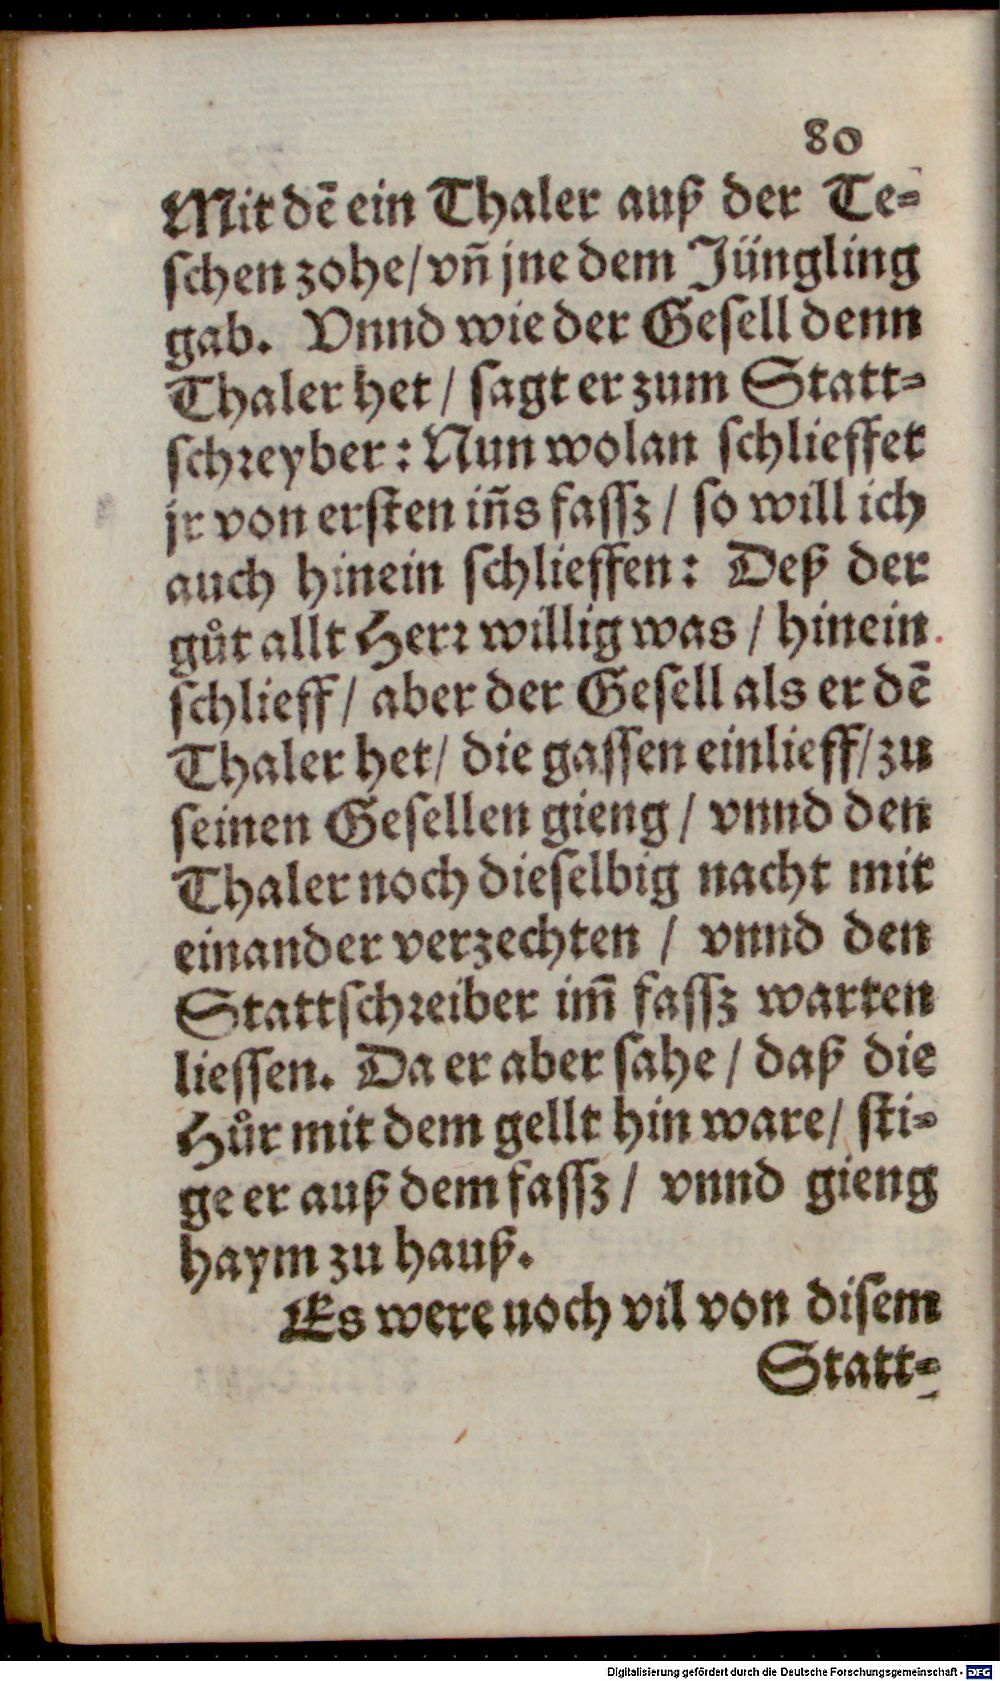 80
Mit dē ein Thaler auß der Te-
schen zohe/ vñ jne dem Jüngling
gab. Vnnd wie der Gesell denn
Thaler het / sagt er zum Statt-
schreyber: Nun wolan schlieffet
jr von ersten iñs fassz / so will ich
auch hinein schlieffen: Deß der
gůt allt Herr willig was / hinein
schlieff/ aber der Gesell als er dē
Thaler het/ die gassen einlieff/ zu
seinen Gesellen gieng / vnnd den
Thaler noch dieselbig nacht mit
einander verzechten / vnnd den
Stattschreiber im̄ fassz warten
liessen. Da er aber sahe / daß die
Hůr mit dem gellt hin ware/ sti-
ge er auß dem fassz / vnnd gieng
haym zu hauß.
Es were noch vil von disem
Statt-
Digitalisierung gefördert durch die Deutsche Forschungsgemeinschaft - DFG